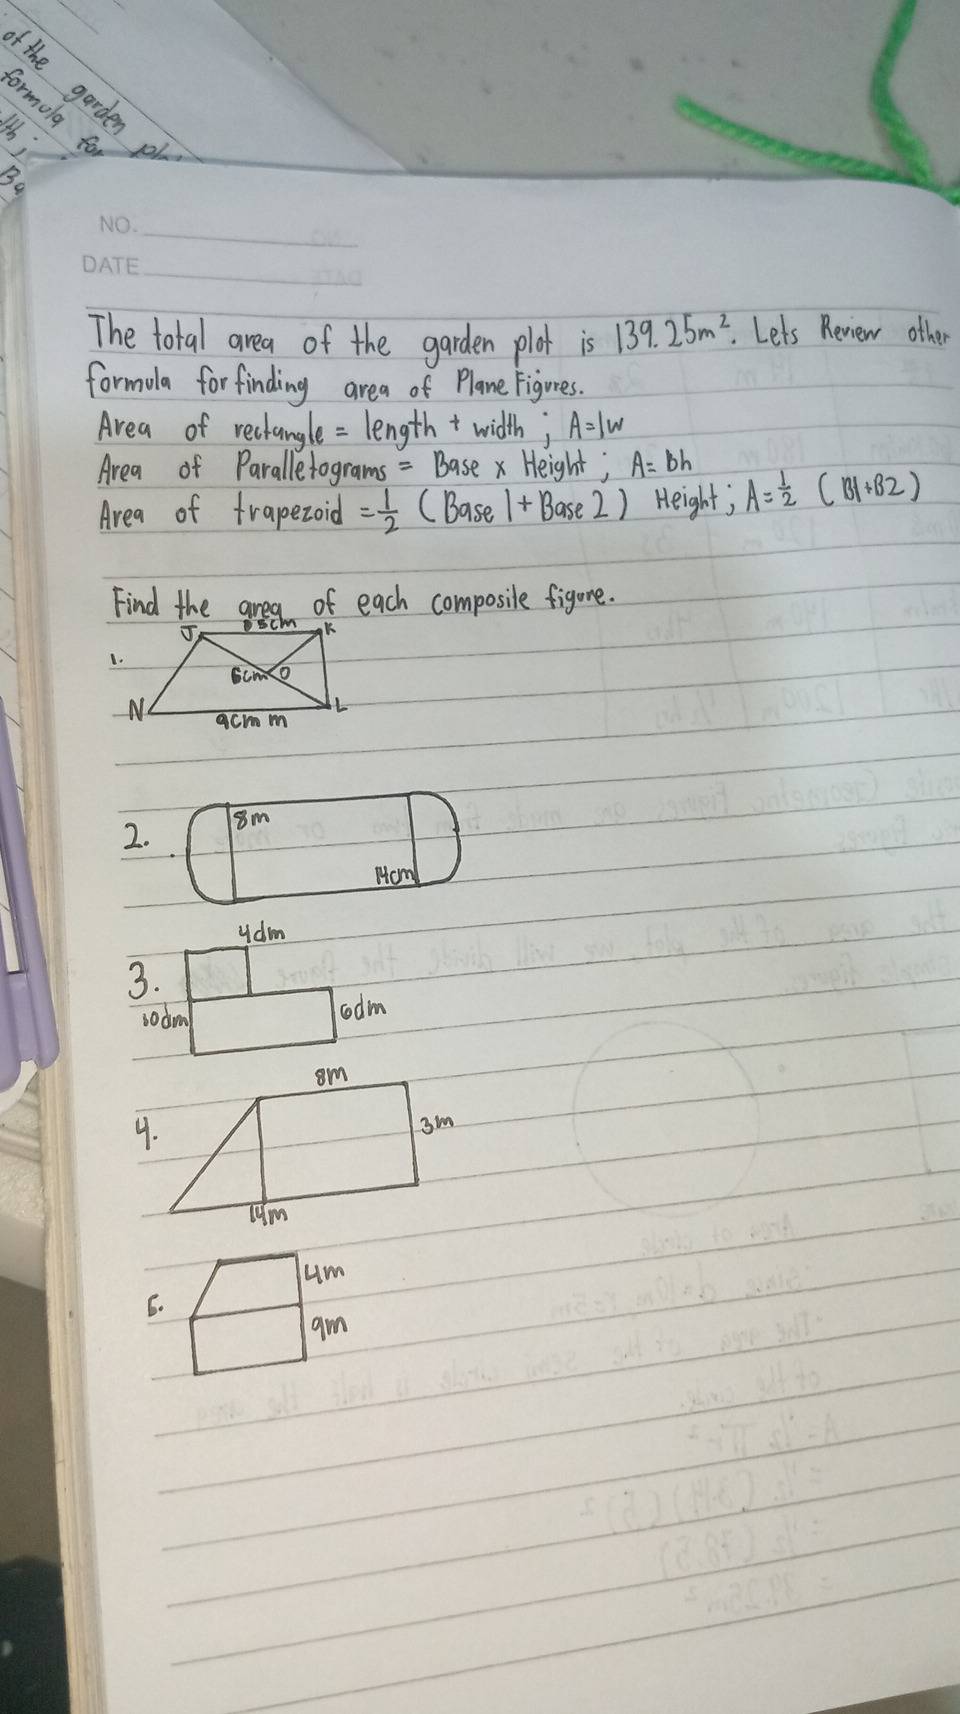 of the garden
formula for
NO.
DATE
The total area of the garden plot is 139.25m². Lets Review other
formula for finding area of Plane Figures.
Area of rectangle = length + width ; A=lw
Area of Paralletograms = Base x Height ; A= bh
Area of trapezoid = 1/2 (Base 1 + Base 2) Height ; A= 1/2 (B1+B2)
Find the area of each composite figure.
J 5cm K
1.
6cm O
N L
9cm m
2. 8m
14cm
4dm
3.
10dm 6dm
8m
4. 3m
14m
4m
5.
9m